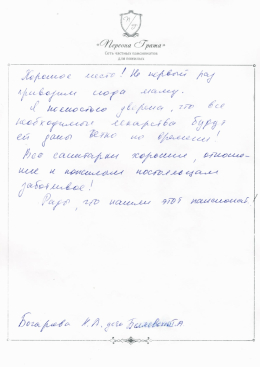 «Персона Грата»
Сеть частных пансионатов
для пожилых
Хорошое место! Не первый раз
приводим сюда маму.
Я полностью уверена, что все
необходимые лекарства будут
ей даны четко по времени!
Все санитарки хорошие, отноше-
ние к пожилым постояльцам
заботливое!
Рады, что нашли этот пансионат!